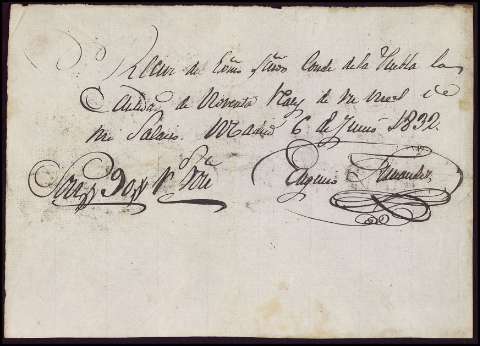 Recivi del Exmo Señor Conde de la Puebla la
Cantidad de Noventa Rs de un mes de
mi Salario. Madrid 6 de Junio 1832.
Son 90 Rs
Eugenio Fernandez